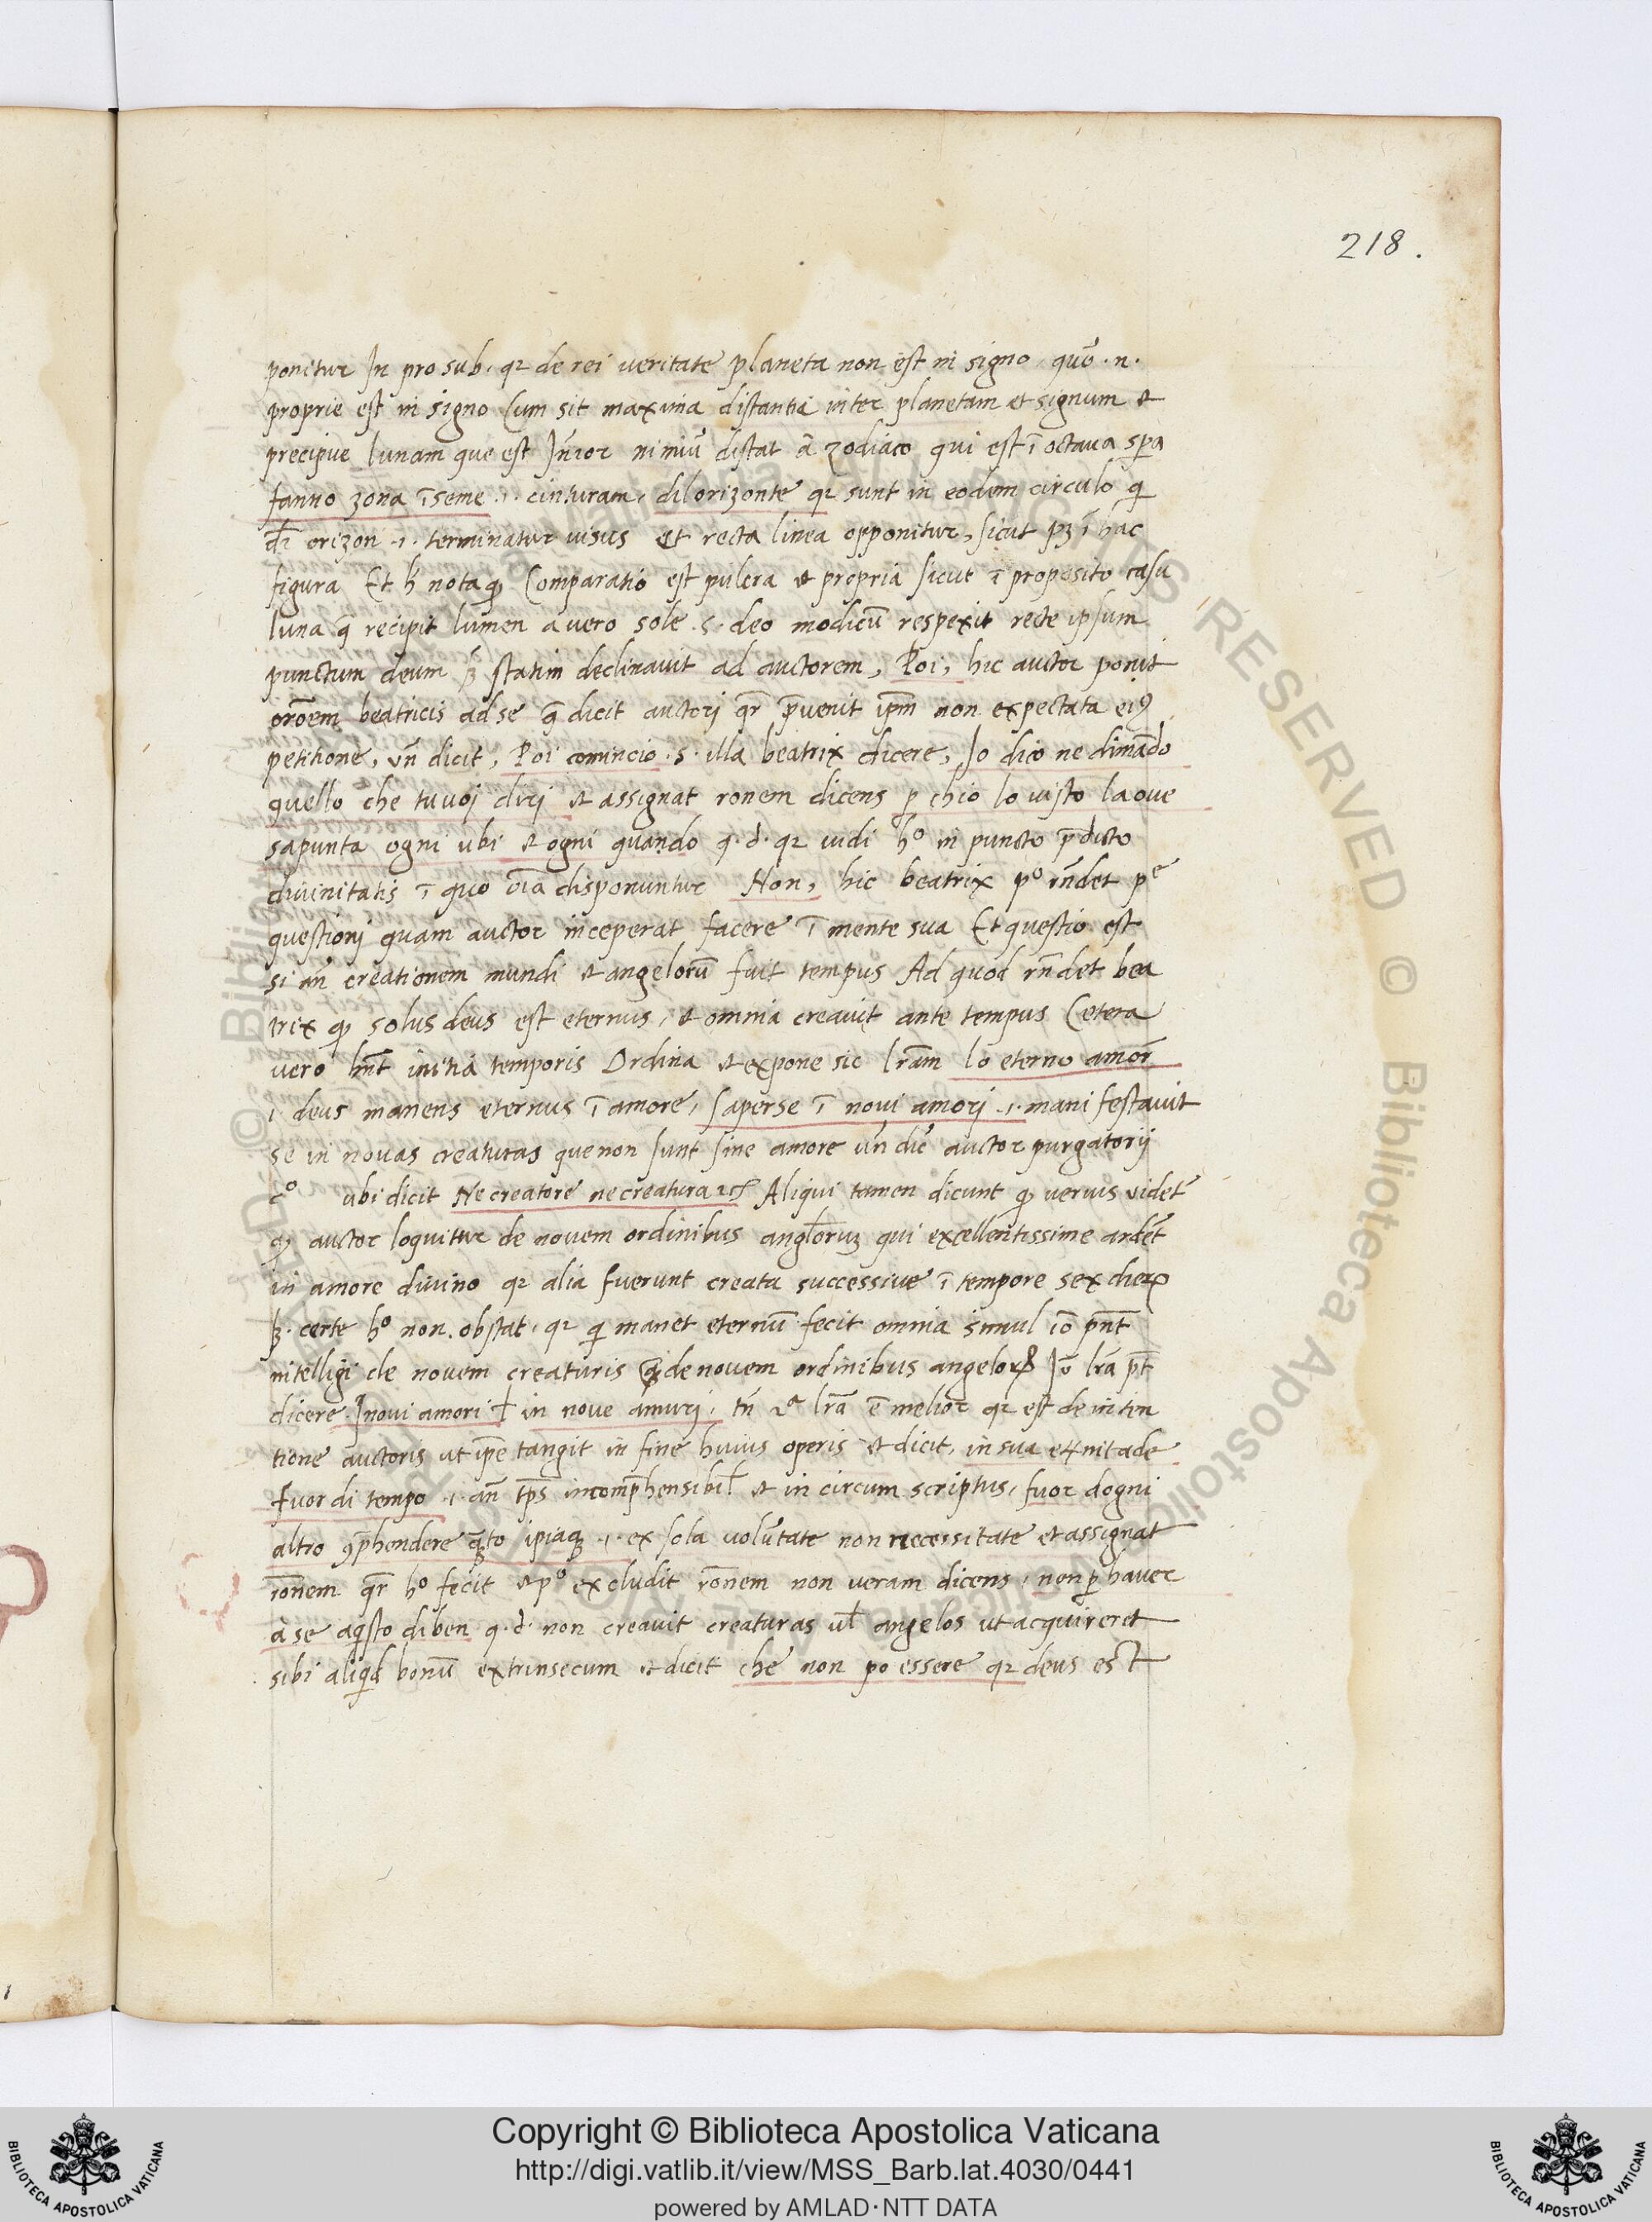 218.
ponitur In pro sub. qr de rei veritate planeta non est in signo quō .n.
proprie est in signo Cum sit maxima distantia inter planetam et signum et
precipue lunam que est Inr̄ior nimiū distat a zodiaco qui est ī octaua spa
fanno zona īseme .i. cinturam, dilorizonte qr sunt in eodem circulo q
dr̄ orizon .i. terminatur uisus et recta linea opponitur, sicut pȝ ī hac
figura Et h' nota q Comparatio est pulcra et propria sicut ī proposito casu
luna q̄ recipit lumen a vero sole .s. deo modicū respexit recte ipsum
punctum deum ȝ statim declinauit ad auctorem, Poi, hic auctor ponit
orōem beatricis ad se q̄ dicit auctori qr̄ p̄uenit ip̄m non expectata eiꝰ
petitione, vn̄ dicit, Poi comincio .s. illa beatrix dicere, Io dico ne dimādo
quello che tu uoi diri et assignat ronem dicens p chio lo uisto la oue
sapunta ogni ubi et ogni quando q.d. qr uidi hº in puncto p̄dicto
diuinitatis ī quo oīa disponuntur Non, hic beatrix pº rn̄det pᵉ
questionj quam auctor inceperat facere ī mente sua Et questio est
si an̄ creationem mundi et angelorū fuit tempus Ad quod rn̄det bea
trix q solus deus est eternus, et omnia creauit ante tempus Cetera
vero hn̄t initia temporis Ordina et expone sic lr̄am lo eterno amor
i. deus manens eternus ī amore, saperse ī noui amorj .i. manifestauit
se in nouas creaturas que non sunt sine amore un̄ dic̄ auctor purgatorij
cº ubi dicit Ne creatore ne creatura Aliqui tamen dicunt q verius videt̄
q auctor loquitur de nouem ordinibus anglorum qui excellentissime ardēt
in amore diuino qr alia fuerunt creata successiue ī tempore sex dierꝝ
ȝ. certe hº non obstat. qr q manet eternū fecit omnia simul iō pn̄t
intelligi de nouem creaturis de nouem ordinibus angelorꝝ Iō lr̄a pt̄
dicere. Inoui amori in noue amurj, tn̄ 2ᵃ lr̄a ē melior qr est de intin
tione auctoris ut ip̄e tangit in fine huius operis et dicit, in sua et nitade
fuor di tempo .i. an̄ tp̄s incomp̄hensibil et in circum scriptus, fuor dogni
altro ꝯp̄hendere q̄to ipiaq .i. ex sola volūtate non necessitate et assignat
rōnem qr̄ hº fecit et pº excludit rōnem non veram dicens, non p hauer
a se aqsto di ben q.d. non creauit creaturas ul angelos ut acquireret
sibi aliqd bonū extrinsecum et dicit che non po essere qr deus est
Copyright © Biblioteca Apostolica Vaticana
http://digi.vatlib.it/view/MSS_Barb.lat.4030/0441
powered by AMLAD·NTT DATA
BIBLIOTECA APOSTOLICA VATICANA
BIBLIOTECA APOSTOLICA VATICANA